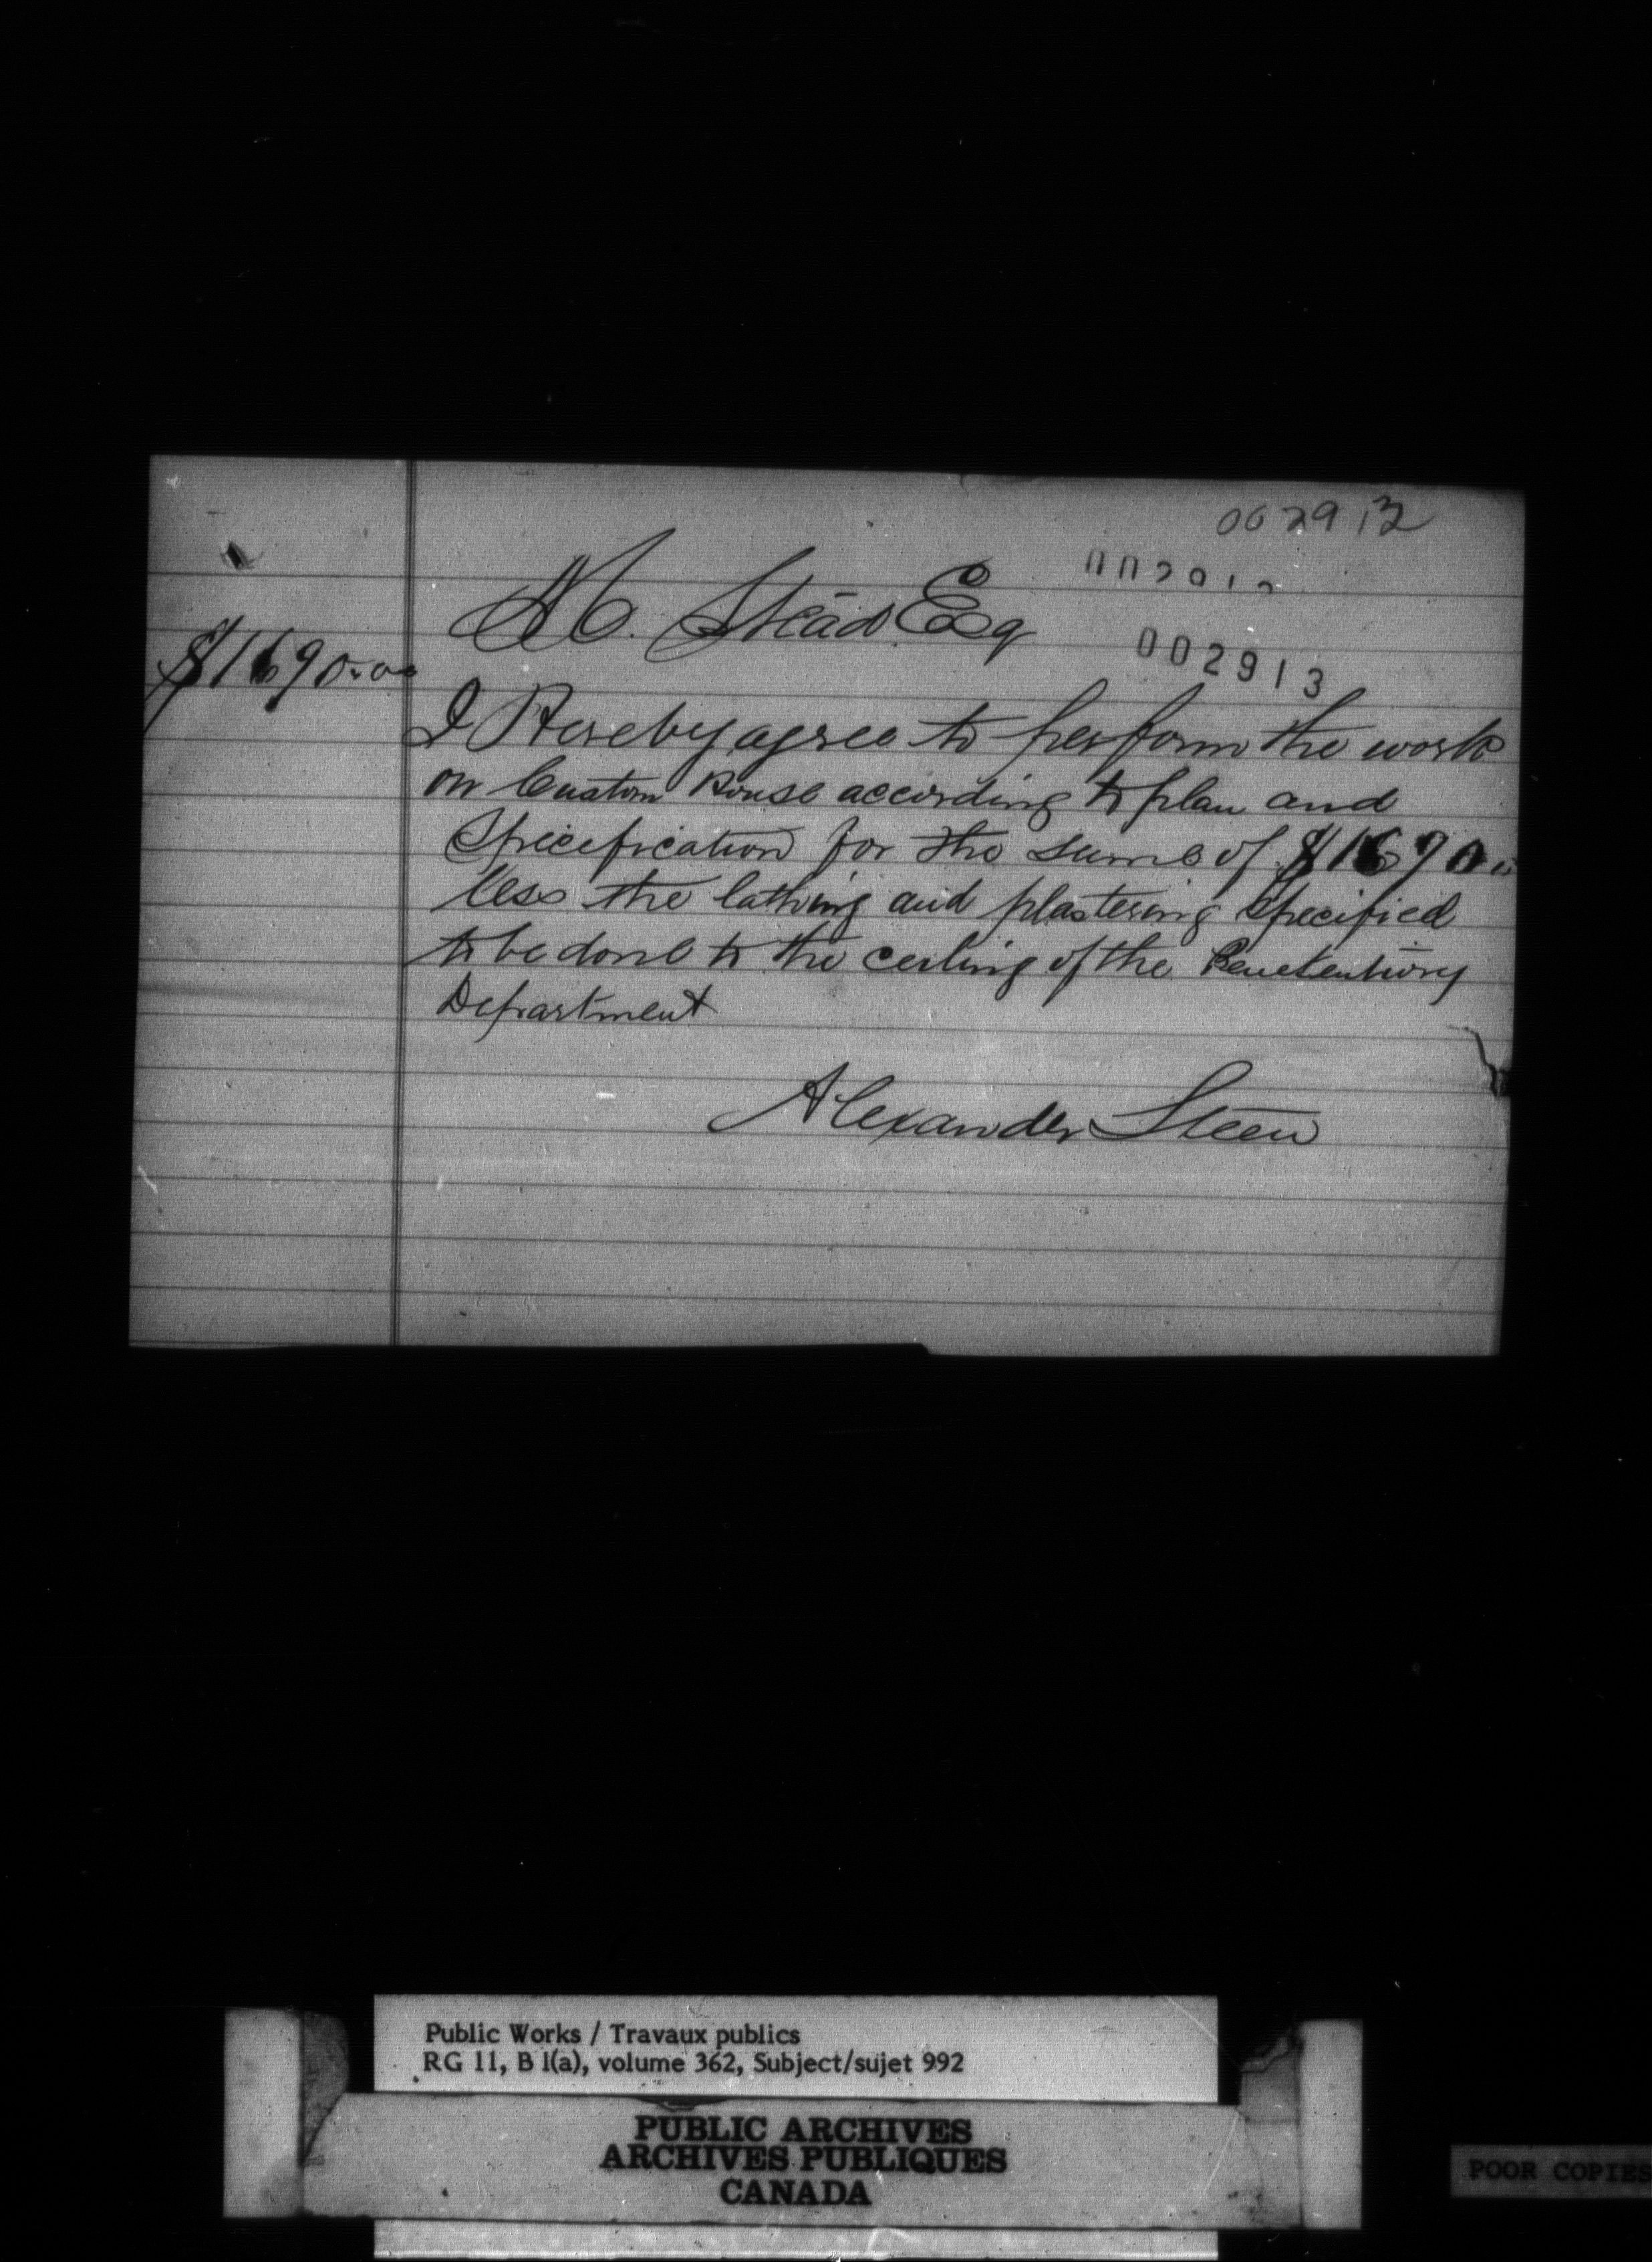 002913
M. Stead Esq
002913
$1690.00
I Hereby agree to perform the work
on Custom House according to plan and
Specefication for the sume of $1690
less the lathing and plastering specified
to be done to the ceiling of the Penetentiory
Department
Alexander Steen
Public Works / Travaux publics
RG 11, B 1(a), volume 362, Subject/sujet 992
PUBLIC ARCHIVES
ARCHIVES PUBLIQUES
CANADA
POOR COPIES